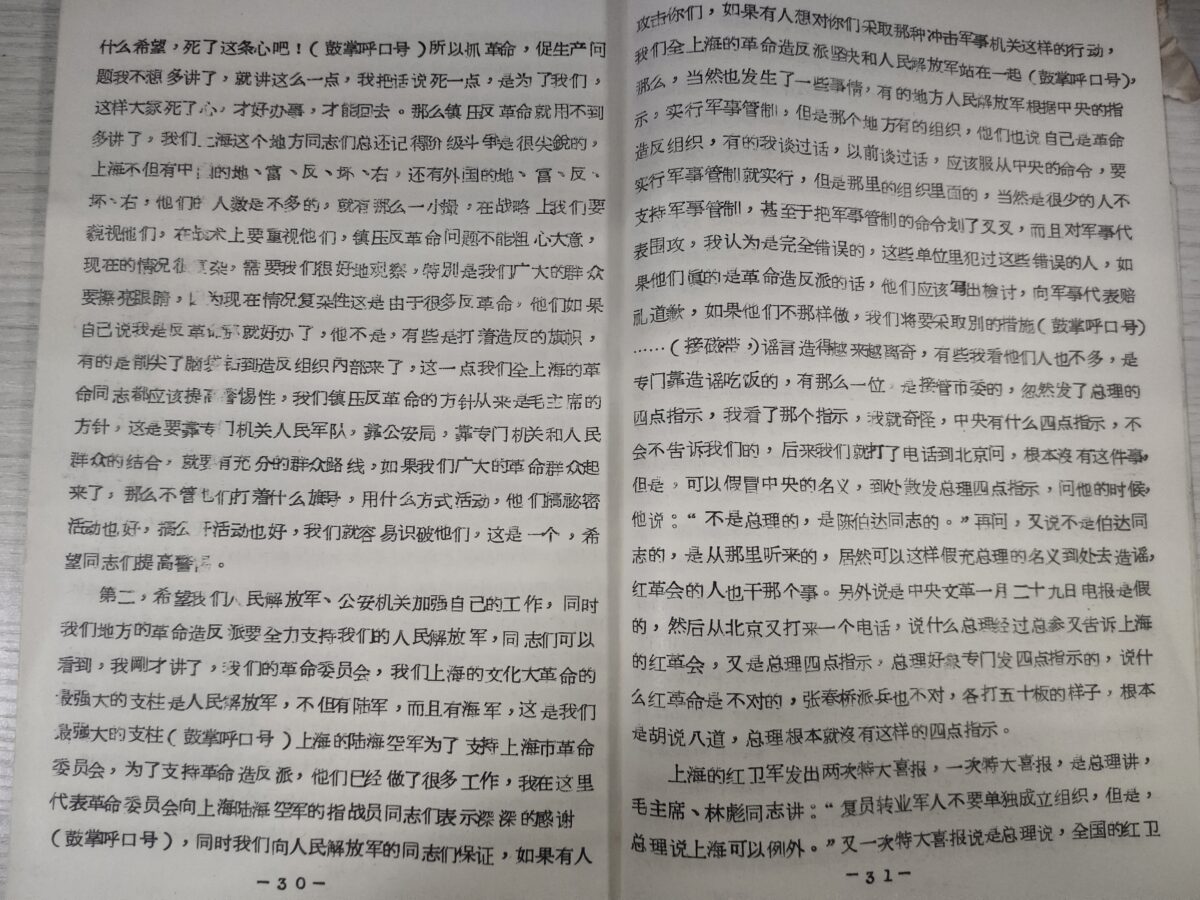 什么希望，死了这条心吧！（鼓掌呼口号）所以抓革命，促生产问
题我不想多讲了，就讲这么一点，我把话说死一点，是为了我们，
这样大家死了心，才好办事，才能回去。那么镇压反革命就用不到
多讲了，我们上海这个地方同志们总还记得阶级斗争是很尖銳的，
上海不但有中国的地、富、反、坏、右，还有外国的地、富、反、
坏、右，他们的人数是不多的，就有那么一小撮，在战略上我们要
藐视他们，在战术上要重视他们，镇压反革命问题不能粗心大意，
现在的情况很复杂，需要我们很好地观察，特别是我们广大的群众
要擦亮眼睛，因为现在情况复杂性这是由于很多反革命，他们如果
自己说我是反革命那就好办了，他不是，有些是打着造反的旗帜，
有的是削尖了脑袋钻到造反组织內部来了，这一点我们全上海的革
命同志都应该提高警惕性，我们镇压反革命的方针从来是毛主席的
方针，这是要靠专门机关人民军队，靠公安局，靠专门机关和人民
群众的结合，就要有充分的群众路线，如果我们广大的革命群众起
来了，那么不管他们打着什么旗号，用什么方式活动，他们搞祕密
活动也好，搞公开活动也好，我们就容易识破他们，这是一个，希
望同志们提高警惕。
第二，希望我们人民解放军、公安机关加强自己的工作，同时
我们地方的革命造反派要全力支持我们的人民解放军，同志们可以
看到，我刚才讲了，我们的革命委员会，我们上海的文化大革命的
最強大的支柱是人民解放军，不但有陆军，而且有海军，这是我们
最强大的支柱（鼓掌呼口号）上海的陆海空军为了支持上海市革命
委员会，为了支持革命造反派，他们已经做了很多工作，我在这里
代表革命委员会向上海陆海空军的指战员同志们表示深深的感谢
（鼓掌呼口号），同时我们向人民解放军的同志们保证，如果有人
－30－
攻击你们，如果有人想对你们采取那种冲击军事机关这样的行动，
我们全上海的革命造反派坚决和人民解放军站在一起（鼓掌呼口号），
那么，当然也发生了一些事情，有的地方人民解放军根据中央的指
示，实行军事管制，但是那个地方有的组织，他们也说自己是革命
造反组织，有的我谈过话，以前谈过话，应该服从中央的命令，要
实行军事管制就实行，但是那里的组织里面的，当然是很少的人不
支持军事管制，甚至于把军事管制的命令划了叉叉，而且对军事代
表围攻，我认为是完全错误的，这些单位里犯过这些错误的人，如
果他们眞的是革命造反派的话，他们应该写出檢讨，向军事代表赔
礼道歉，如果他们不那样做，我们将要采取別的措施（鼓掌呼口号）
……（接磁带，）谣言造得越来越离奇，有些我看他们人也不多，是
专门靠造谣吃饭的，有那么一位，是接管市委的，忽然发了总理的
四点指示，我看了那个指示，我就奇怪，中央有什么四点指示，不
会不告诉我们的，后来我们就打了电话到北京问，根本沒有这件事，
但是，可以假冒中央的名义，到处散发总理四点指示，问他的时候，
他说：“不是总理的，是陈伯达同志的。”再问，又说不是伯达同
志的，是从那里听来的，居然可以这样假充总理的名义到处去造谣，
红革会的人也干那个事。另外说是中央文革一月二十九日电报是假
的，然后从北京又打来一个电话，说什么总理经过总参又告诉上海
的红革会，又是总理四点指示，总理好象专门发四点指示的，说什
么红革命是不对的，张春桥派兵也不对，各打五十板的样子，根本
是胡说八道，总理根本就沒有这样的四点指示。
上海的红卫军发出两次特大喜报，一次特大喜报，是总理讲，
毛主席、林彪同志讲：“复员转业军人不要单独成立组织，但是，
总理说上海可以例外。”又一次特大喜报说是总理说，全国的红卫
－31－